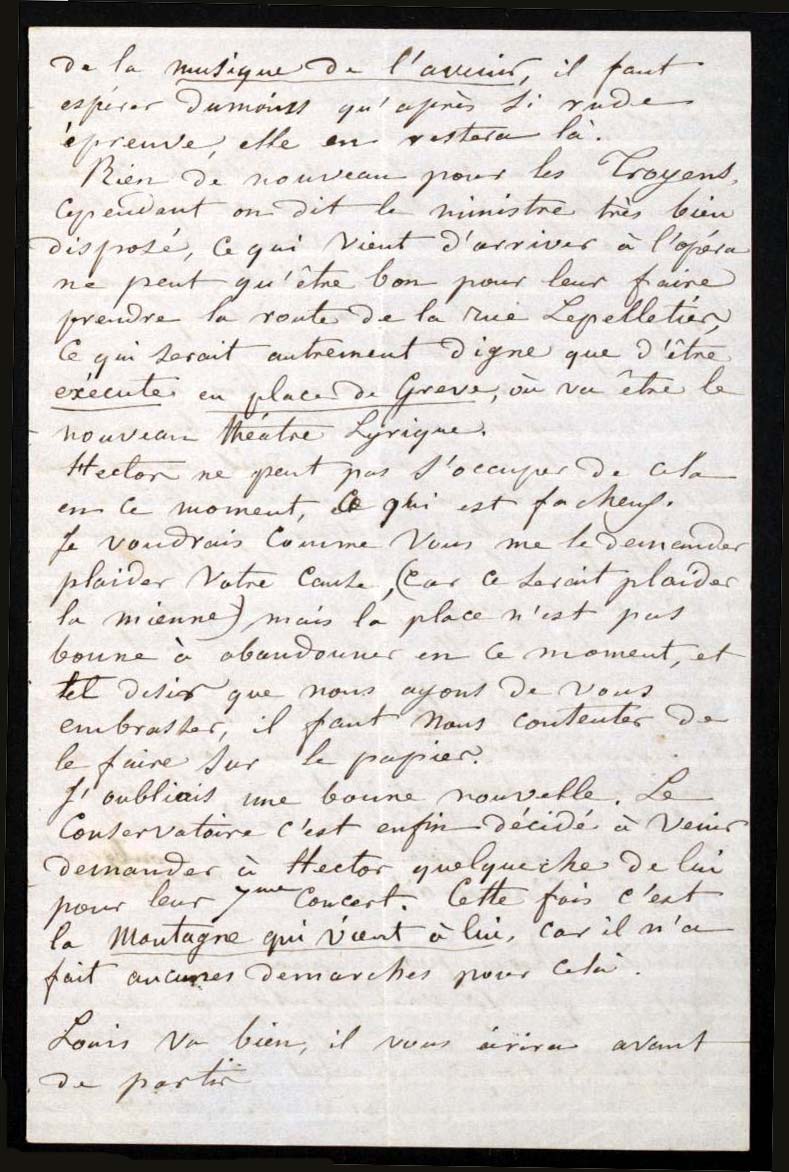 de la musique de l'avenir, il faut
espérer dumoins qu'après si rude
épreuve, elle en restera là.
Rien de nouveau pour les Troyens,
cependant on dit le ministre très bien
disposé, ce qui vient d'arriver à l'opéra
ne peut qu'être bon pour leur faire
prendre la route de la rue Lepelletier,
ce qui serait autrement digne que d'être
exécuté en place de Greve, où va être le
nouveau théatre Lyrique.
Hector ne peut pas s'occuper de cela
en ce moment, ce qui est facheux.
Je voudrais comme vous me le demander
plaider votre cause, (car ce serait plaider
la mienne) mais la place n'est pas
bonne à abandonner en ce moment, et
tel desir que nous ayons de vous
embrasser, il faut nous contenter de
le faire sur le papier.
J'oubliais une bonne nouvelle. Le
Conservatoire c'est enfin décidé à venir
demander à Hector quelque che de lui
pour leur 7me Concert. Cette fois c'est
la Montagne qui vient à lui, car il n'a
fait aucunes demarches pour cela.
Louis va bien, il vous écrira avant
de partir